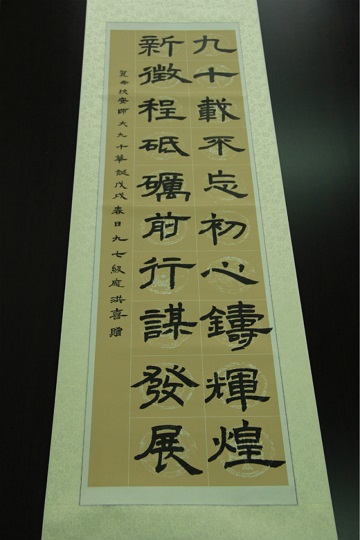 九十載不忘初心鑄輝煌
新徵程砥礪前行謀發展
賀母校齊師大九十華誕戊戌春日九七級庭洪喜贈